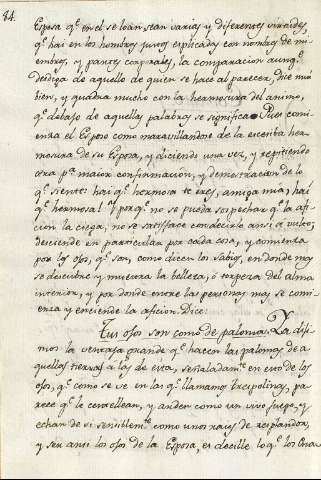 84.
Esposa qᵉ en el se loan, sean varias y diferentes virtudes,
qᵉ hai en los hombres justos esplicadas con nombres de mi-
embros, y partes corporales, la comparacion aunqᵉ
desdiga de aquello de quien se hace al parecer, dice mui
bien, y quadra mucho con la hermosura del animo,
qᵉ debajo de aquellas palabras se significa. Pues comi-
enza el Esposo como maravillandose de la escesiva her-
mosura de su Esposa, y diciendo una vez, y repitiendo
otra pᵃ maior confirmacion, y demostracion de lo
qᵉ siente: hai qᵉ hermosa te eres, amiga mia, hai
qᵉ hermosa! Y porqᵉ no se pueda sospechar qᵉ la afi-
cion la ciega, no se satisface con decirlo ansi a vulto;
desciende en particular por cada cosa, y comienza
por los ojos, qᵉ son, como dicen los sabios, en donde mas
se descubre y muestra la belleza, ó torpeza del alma
interior, y por donde entre las personas mas se comi-
enza y enciende la aficion. Dice:
Tus ojos son como de paloma. Ya diji-
mos la ventaja grande qᵉ hacen las palomas de a-
quellas tierras a las de esta, señaladamᵗᵉ en esto de los
ojos, qᵉ como se ve en las qᵉ llamamos tripolinas, pa-
rece qᵉ le centellean, y anden como un vivo fuego, y
echan de sí sensiblemᵗᵉ como unos raios de resplandor,
y ser ansi los ojos de la Esposa, es decille lo qᵉ los